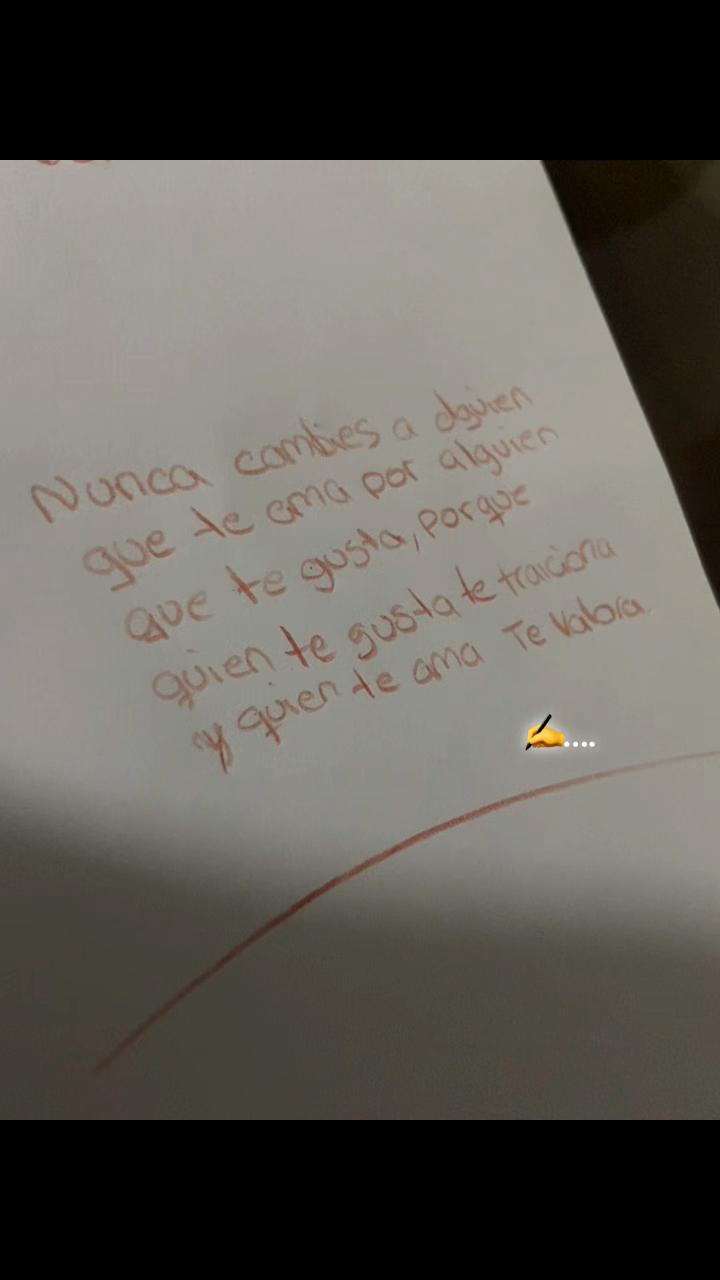 Nunca cambies a alguien
que te ama por alguien
que te gusta, porque
quien te gusta te traiciona
y quien te ama Te Valora.